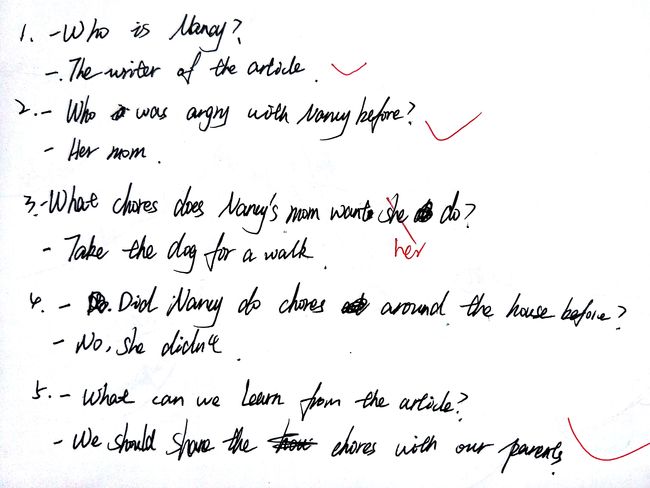 1. - Who is Nancy?
- The writer of the article.
2. - Who was angry with Nancy before?
- Her mom.
3. - What chores does Nancy's mom want she do?
her
- Take the dog for a walk.
4. - Did Nancy do chores around the house before?
- No, she didn't.
5. - What can we learn from the article?
- We should share the chores with our parents.